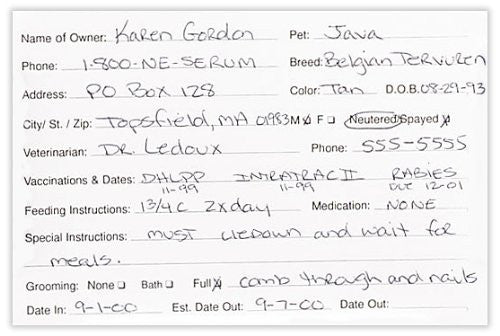 Name of Owner: Karen Gordon Pet: Java
Phone: 1-800-NE-SERUM Breed: Belgian Tervuren
Address: PO Box 128 Color: Tan D.O.B. 08-29-93
City/ St. / Zip: Topsfield, MA 01983 M ☒ F ☐ Neutered/Spayed ☒
Veterinarian: DR. Ledoux Phone: 555-5555
Vaccinations & Dates: DHLPP INTRATRAC II RABIES
11-99 11-99 DUE 12-01
Feeding Instructions: 1 3/4 C 2x day Medication: NONE
Special Instructions: MUST LIEDOWN and wait for
meals.
Grooming: None ☐ Bath ☐ Full ☒ comb through and nails
Date In: 9-1-00 Est. Date Out: 9-7-00 Date Out: